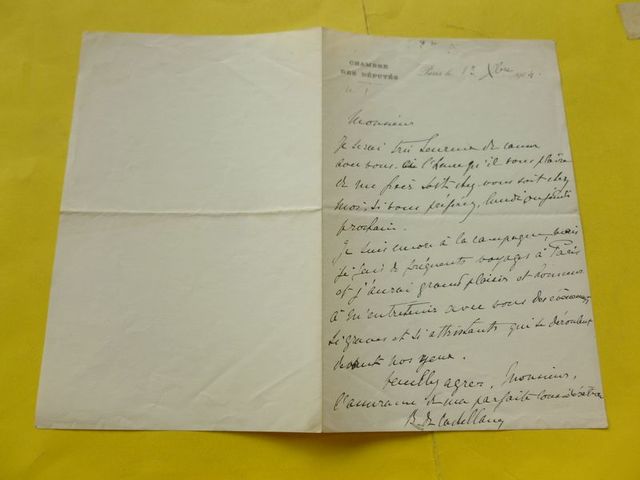 CHAMBRE
DES DÉPUTÉS
Paris le 12 Xbre 1904.
Monsieur
Je serai très heureux de causer
avec vous à l'heure qu'il vous plaira
de me fixer soit chez vous soit chez
moi, si vous préférez, lundi ou jeudi
prochain.
Je suis encore à la campagne, mais
je fais de fréquents voyages à Paris
et j'aurai grand plaisir et honneur
à m'entretenir avec vous des événements
si graves et si attristants qui se déroulent
devant nos yeux.
Veuillez agréer, Monsieur,
l'assurance de ma parfaite considération
B. de Castellane